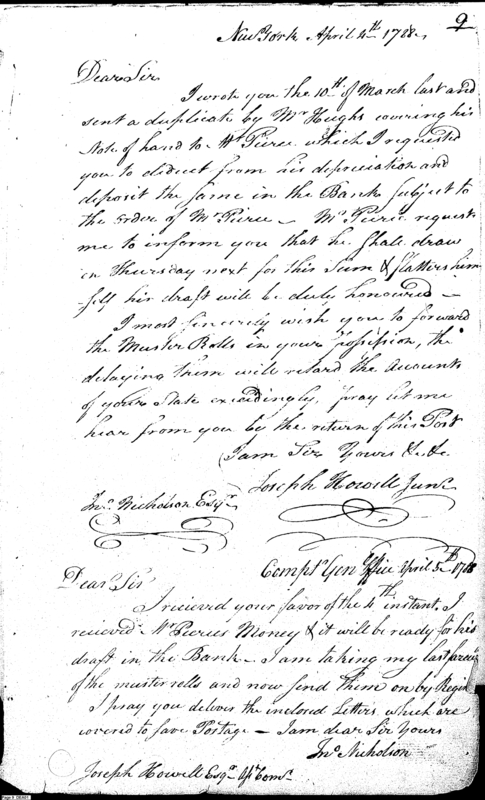 9
New York April 4th 1788
Dear Sir
I wrote you the 10th of March last and
sent a duplicate by Mr Hughs covering his
Note of hand to Mr Pierce which I requested
you to deduct from his depreciation and
deposit the same in the Bank Subject to
the order of Mr Pierce — Mr Pierce requests
me to inform you that he shall draw
on Thursday next for this Sum & flatters him
-self his draft will be duly honoured —
I most sincerely wish you to forward
the Muster Rolls in your possession, the
delaying them will retard the Accounts
of your State exceedingly, pray let me
hear from you by the return of this Post
I am Sir Yours &c &c
Joseph Howell Junr
Jno. Nicholson Esqr
Compt Genl Office April 5th 1788
Dear Sir
I recieved your favor of the 4th instant. I
recieved Mr Pierces Money & it will be ready for his
draft in the Bank — I am taking my last
of the muster rolls and now send them on by
I pray you deliver the inclosed Letters which are
covered to save Postage — I am dear Sir yours
Jno Nicholson
Joseph Howell Esqr